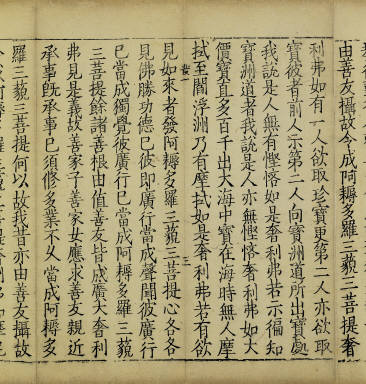 由善友攝故今成阿耨多羅三藐三菩提奢
利弗如有一人欲取珍寶更第二人亦欲取
寶彼者前人示第二人向寶洲道所出寶處
我說是人無有慳悋如是奢利弗若示徊知
寶洲道者我說是人亦無慳悋奢利弗如大
價寶直多百千出大海中寶在海時無人摩
拭至閻浮洲乃有摩拭如是奢利弗若有欲
見如來者發阿耨多羅三藐三菩提心各各
見佛勝功德已彼即廣行當成聲聞彼廣行
已當成獨覺彼廣行已當成阿耨多羅三藐
三菩提餘諸善根由值善友皆成廣大奢利
弗見是義故善家子善家女應求善友親近
承事旣承事已須修多業不久當成阿耨多
羅三藐三菩提何以故我昔亦由善友攝故